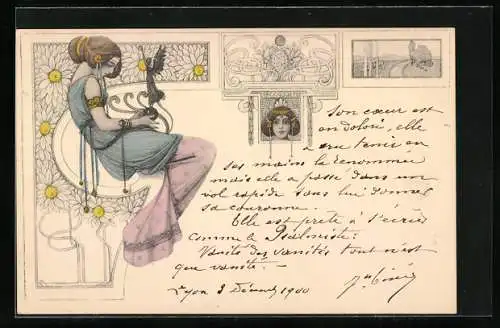 Son cœur est
endolori, elle
a cru tenir en
ses mains la renommée
mais elle a passé dans un
vol rapide sans lui donner
sa couronne.
Elle est prête à s'écrier
comme le Psalmiste:
Vanité des vanités tout n'est
que vanité! -
Lyon 3 Décembre 1900